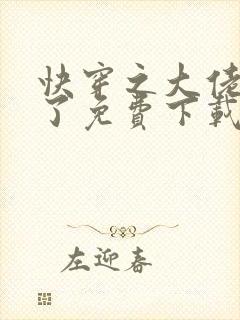 快穿之大佬
了免費下載
左迎春